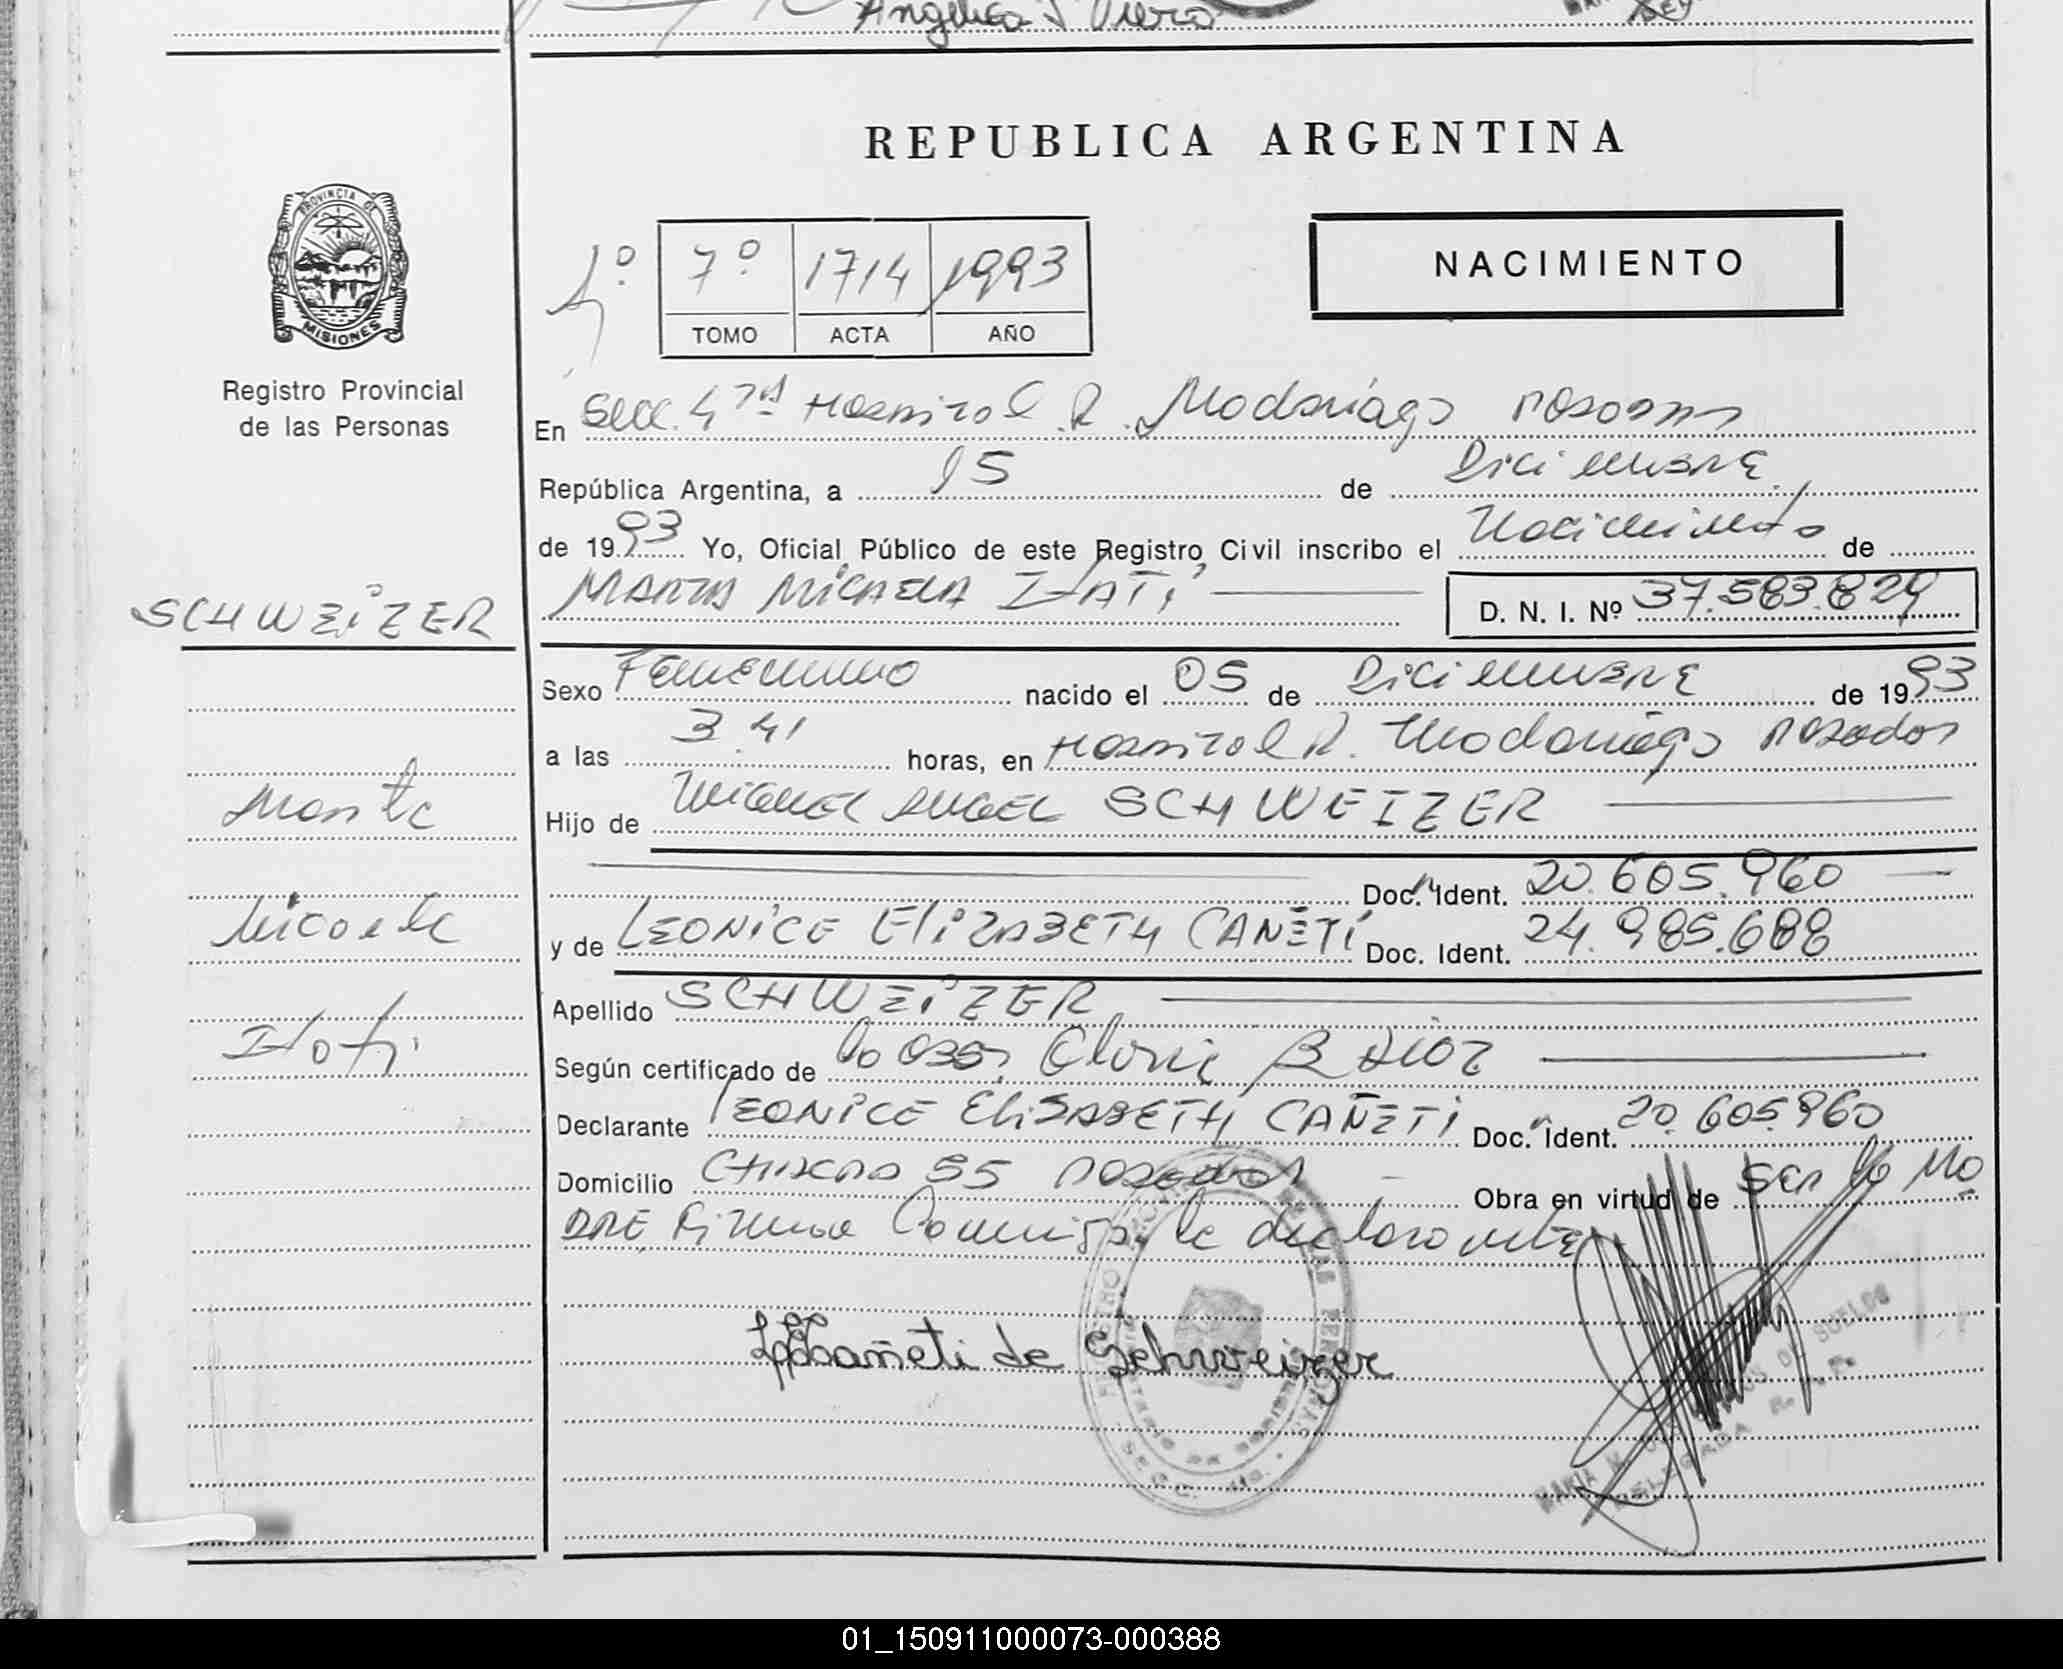 Angelica
REPUBLICA ARGENTINA
PROVINCIA DE
MISIONES
Registro Provincial
de las Personas
7º 1714 1993
TOMO ACTA AÑO
NACIMIENTO
En Secc. 4 Hospital R. Madariaga Posadas
República Argentina, a 15 de Diciembre
de 1993 Yo, Oficial Público de este Registro Civil inscribo el Nacimiento de
MARIA MICAELA ITATI D. N. I. Nº 37.583.829
SCHWEIZER
Sexo Femenino nacido el 05 de Diciembre de 1993
a las 3.41 horas, en Hospital R. Madariaga Posadas
Maria
Hijo de MIGUEL ANGEL SCHWEIZER
Doc. Ident. 20.605.960
Micaela
y de LEONICE ELIZABETH CAÑETI Doc. Ident. 24.985.688
Apellido SCHWEIZER
Itati
Según certificado de
Declarante LEONICE ELISABETH CAÑETI Doc. Ident. 20.605.960
Domicilio 55 Posadas Obra en virtud de ser la MA
DRE Firma la declarante
Cañeti de Schweizer
SUELDO
MARIA
DELEGADA
01_150911000073-000388